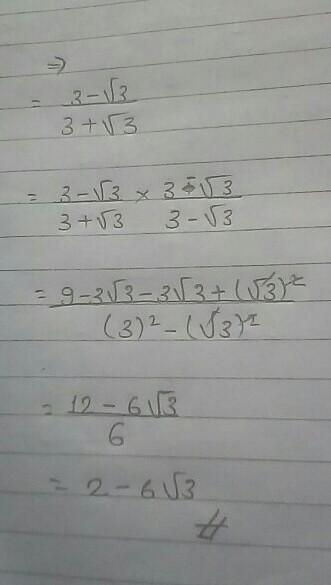 ⇒
= 3-√3 / 3+√3
= 3-√3 / 3+√3 × 3-√3 / 3-√3
= 9-3√3-3√3+(√3)² / (3)²-(√3)²
= 12-6√3 / 6
= 2-6√3
#